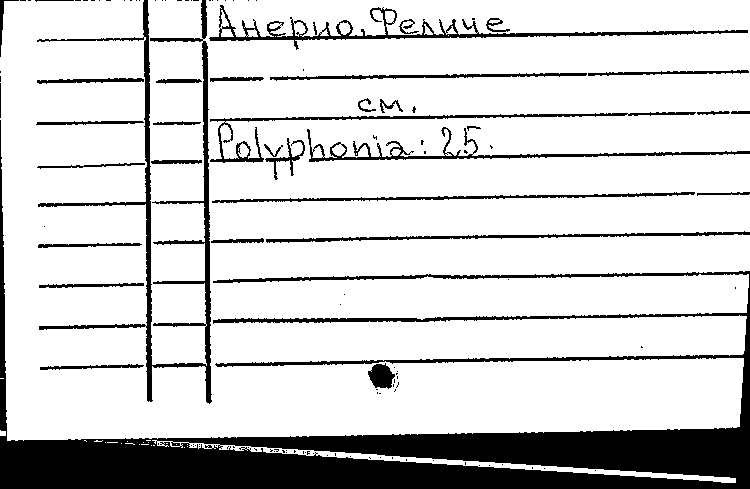 Анерио, Феличе
см.
Polyphonia: 25.